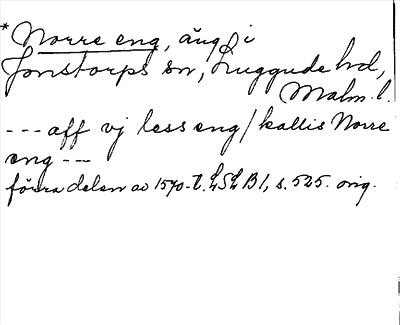 * Norre eng, äng i
Jonstorps sn, Luggude hd,
Malm. l.
--- aff vj less eng / kallis Norre
eng ---
förra delen av 1570-t. LSLB1, s. 525. orig.